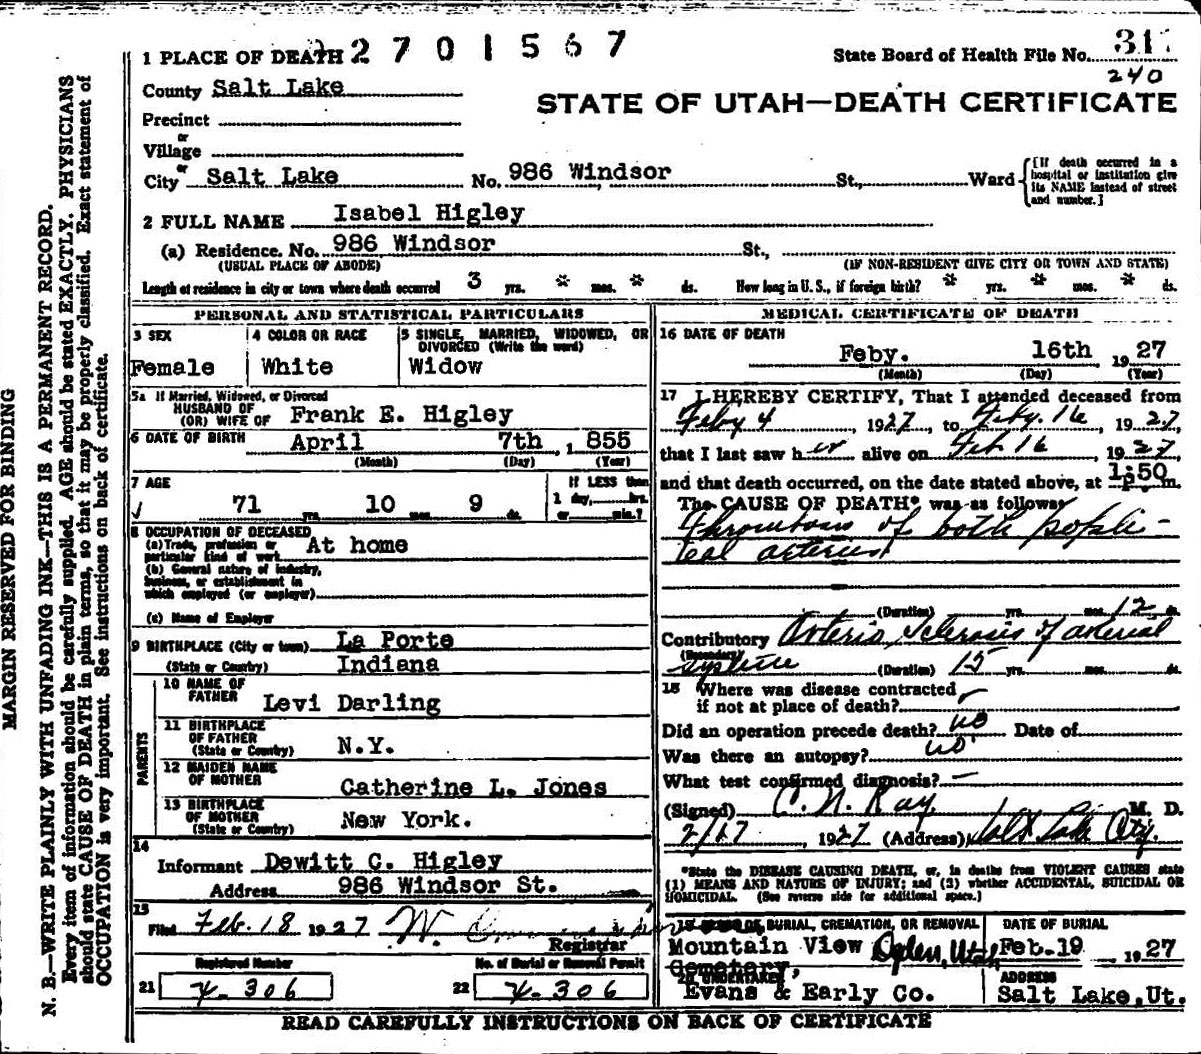 MARGIN RESERVED FOR BINDING
N. B.—WRITE PLAINLY WITH UNFADING INK—THIS IS A PERMANENT RECORD.
Every item of information should be carefully supplied. AGE should be stated EXACTLY. PHYSICIANS
should state CAUSE OF DEATH in plain terms, so that it may be properly classified. Exact statement of
OCCUPATION is very important. See instructions on back of certificate.
1 PLACE OF DEATH 2701567
State Board of Health File No.
240
County Salt Lake
STATE OF UTAH—DEATH CERTIFICATE
Precinct
or
Village
or
City Salt Lake No. 986 Windsor St., Ward
[If death occurred in a
hospital or institution give
its NAME instead of street
and number.]
2 FULL NAME Isabel Higley
(a) Residence. No. 986 Windsor St.,
(USUAL PLACE OF ABODE) (IF NON-RESIDENT GIVE CITY OR TOWN AND STATE)
Length of residence in city or town where death occurred 3 yrs. * mos. * ds. How long in U. S., if foreign birth? * yrs. * mos. * ds.
PERSONAL AND STATISTICAL PARTICULARS
3 SEX
Female
4 COLOR OR RACE
White
5 SINGLE, MARRIED, WIDOWED, OR
DIVORCED (Write the word)
Widow
5a If Married, Widowed, or Divorced
HUSBAND OF
(OR) WIFE OF Frank E. Higley
6 DATE OF BIRTH April 7th, 1855
(Month) (Day) (Year)
7 AGE
71 yrs. 10 mos. 9 ds.
If LESS than
1 day, hrs.
or min.?
8 OCCUPATION OF DECEASED
(a) Trade, profession or
particular kind of work At home
(b) General nature of industry,
business, or establishment in
which employed (or employer)
(c) Name of Employer
9 BIRTHPLACE (City or town) La Porte
(State or Country) Indiana
PARENTS
10 NAME OF
FATHER Levi Darling
11 BIRTHPLACE
OF FATHER
(State or Country) N.Y.
12 MAIDEN NAME
OF MOTHER Catherine L. Jones
13 BIRTHPLACE
OF MOTHER
(State or Country) New York.
14
Informant Dewitt C. Higley
Address 986 Windsor St.
15
Filed Feb. 18 1927 W.
Registrar
Registered Number
21 X-306
No. of Burial or Removal Permit
22 X-306
MEDICAL CERTIFICATE OF DEATH
16 DATE OF DEATH
Feby. 16th, 1927
(Month) (Day) (Year)
17 I HEREBY CERTIFY, That I attended deceased from
Feby 4, 1927, to Feby. 16, 1927,
that I last saw her alive on Feb 16, 1927
and that death occurred, on the date stated above, at 1:50 p. m.
The CAUSE OF DEATH* was as follows
Thrombosis of both poplie-
teal arteries
(Duration) yrs. mos. 12 ds.
Contributory Arterio Sclerosis of arterial
(Secondary)
system (Duration) 15 yrs. mos. ds.
18 Where was disease contracted
if not at place of death?
Did an operation precede death? no Date of
Was there an autopsy? no
What test confirmed diagnosis? —
(Signed) C. N. Ray, M. D.
2/17 1927 (Address) Salt Lake City.
*State the DISEASE CAUSING DEATH, or, in deaths from VIOLENT CAUSES state
(1) MEANS AND NATURE OF INJURY; and (2) whether ACCIDENTAL, SUICIDAL OR
HOMICIDAL. (See reverse side for additional space.)
19 PLACE OF BURIAL, CREMATION, OR REMOVAL
Mountain View Ogden, Utah
Cemetery,
DATE OF BURIAL
Feb. 19, 1927
20 UNDERTAKER
Evans & Early Co.
ADDRESS
Salt Lake, Ut.
READ CAREFULLY INSTRUCTIONS ON BACK OF CERTIFICATE